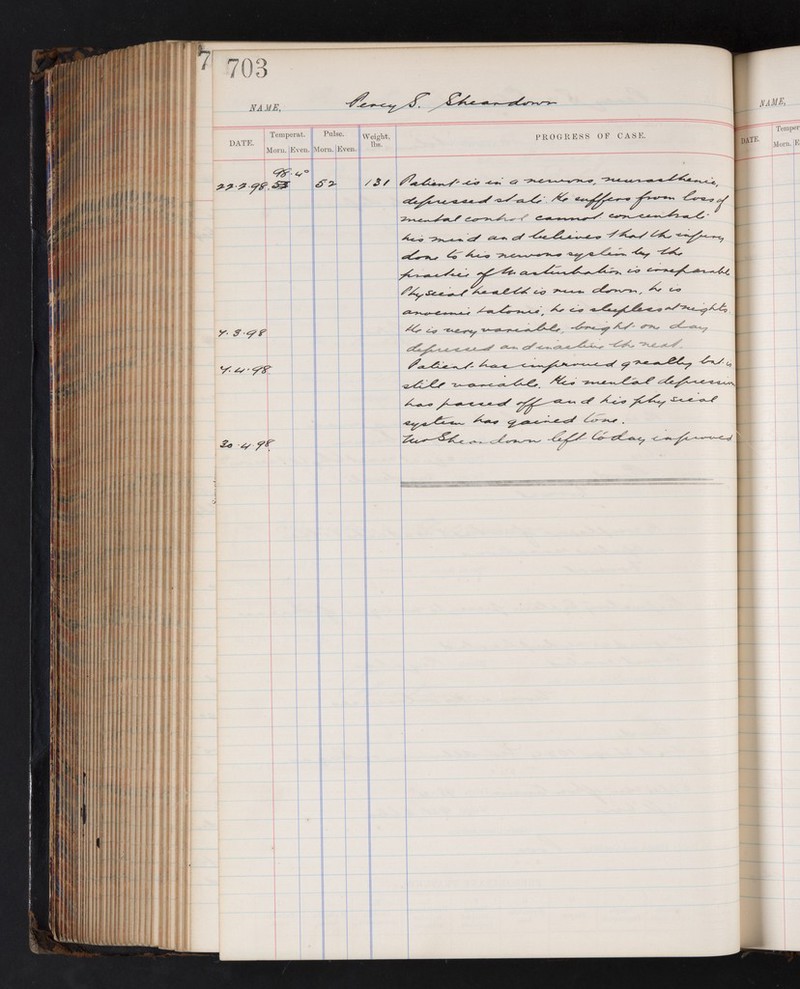 7
703
NAME, Percy S. Sheardown
DATE. Temperat. Pulse. Weight. lbs. PROGRESS OF CASE.
Morn. Even. Morn. Even.
98.4°
22.2.98. 52 131 Patient is in a nervous, neurasthenic,
depressed state. He suffers from loss of
mental control cannot concentrate
his mind and believes that the injury
done to his nervous system by the
practice of Masturbation is irreparable
Physical health is run down, he is
anaemic & atonic, he is sleepless at nights.
7.3.98 He is very variable, bright one day
depressed and inactive the next.
7.4.98 Patient has improved greatly but is
still variable. His mental depression
has passed off and his physical
system has gained tone.
30.4.98. Sheardown left today improved
NAME,
DATE. Temper
Morn. E